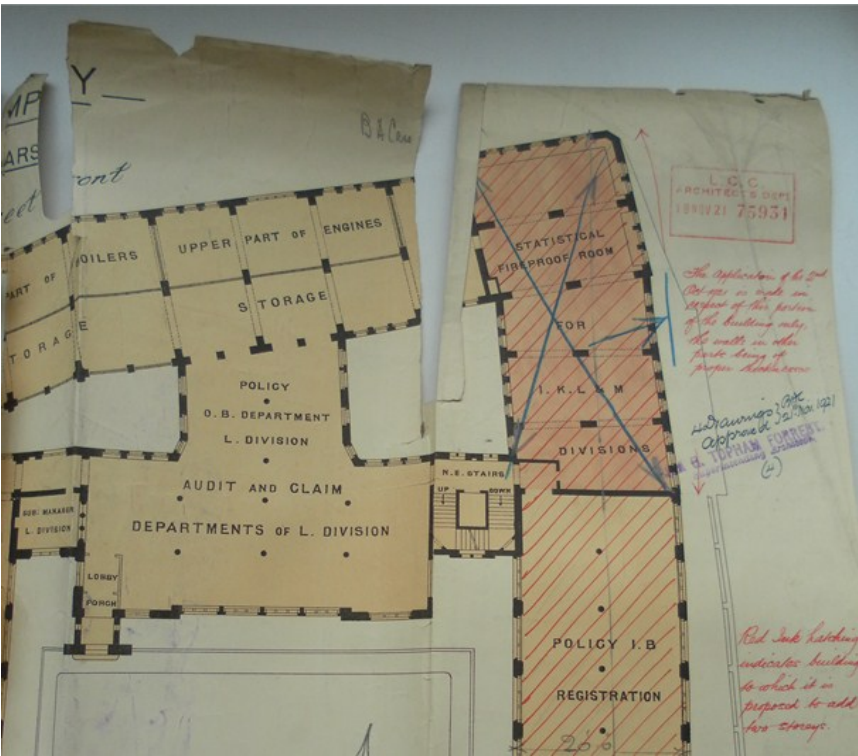 MP
Y
ARS
eet
ont
B A
PART OF
BOILERS
UPPER PART OF ENGINES
STORAGE
STORAGE
POLICY
O.B. DEPARTMENT
L. DIVISION
AUDIT AND CLAIM
DEPARTMENTS OF L. DIVISION
MANAGER
L. DIVISION
LOBBY
PORCH
N.E. STAIRS
UP
DOWN
STATISTICAL
FIREPROOF ROOM
FOR
I. K. L & M
DIVISIONS
POLICY I.B
REGISTRATION
L.C.C.
ARCHITECT'S DEPT
18 NOV 21 75931
The application of the 2nd
is made in
respect of this portion
of the building only,
the walls in other
parts being of
proper thickness
4 Drawings
approved 21 Nov. 1921
TOPHAM FORREST.
Superintending Architect
(4)
Red Ink hatching
indicates building
to which it is
proposed to add
two storeys.